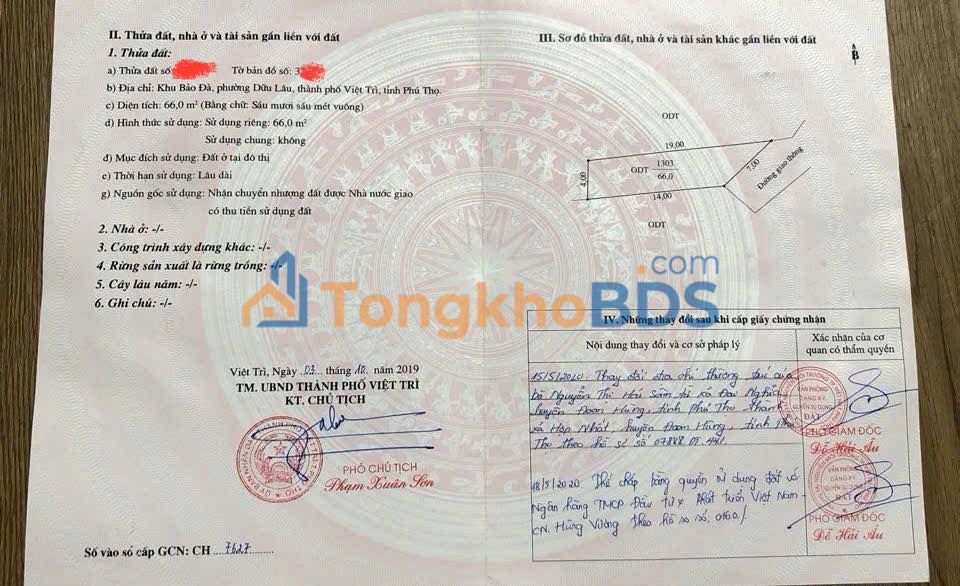 II. Thửa đất, nhà ở và tài sản gắn liền với đất
1. Thửa đất:
a) Thửa đất số Tờ bản đồ số: 3
b) Địa chỉ: Khu Bảo Đà, phường Dữu Lâu, thành phố Việt Trì, tỉnh Phú Thọ.
c) Diện tích: 66,0 m² (Bằng chữ: Sáu mươi sáu mét vuông)
d) Hình thức sử dụng: Sử dụng riêng: 66,0 m²
Sử dụng chung: không
đ) Mục đích sử dụng: Đất ở tại đô thị
e) Thời hạn sử dụng: Lâu dài
g) Nguồn gốc sử dụng: Nhận chuyển nhượng đất được Nhà nước giao
có thu tiền sử dụng đất
2. Nhà ở: -/-
3. Công trình xây dựng khác: -/-
4. Rừng sản xuất là rừng trồng: -/-
5. Cây lâu năm: -/-
6. Ghi chú: -/-
Việt Trì, Ngày 03 tháng 10 năm 2019
TM. UBND THÀNH PHỐ VIỆT TRÌ
KT. CHỦ TỊCH
PHÓ CHỦ TỊCH
Phạm Xuân Sơn
Số vào sổ cấp GCN: CH 7627
III. Sơ đồ thửa đất, nhà ở và tài sản khác gắn liền với đất
B
ODT
19,00
4,00
ODT 1303
66,0
7,00
14,00
Đường giao thông
ODT
TongkhoBDS.com
IV. Những thay đổi sau khi cấp giấy chứng nhận
Nội dung thay đổi và cơ sở pháp lý
Xác nhận của cơ
quan có thẩm quyền
15/5/2020: Thay đổi địa chỉ thường trú của
bà Nguyễn Thị Hải Sâm từ xã Đại Nghĩa,
huyện Đoan Hùng, tỉnh Phú Thọ thành
xã Hợp Nhất, huyện Đoan Hùng, tỉnh Phú
Thọ theo hồ sơ số
VĂN PHÒNG
ĐĂNG KÝ
QUYỀN SỬ DỤNG
ĐẤT
PHÓ GIÁM ĐỐC
Đỗ Hải Âu
18/5/2020 Thế chấp bằng quyền sử dụng đất với
Ngân hàng TMCP Đầu tư & Phát triển Việt Nam
CN. Hùng Vương theo hồ sơ số. 0160./
VĂN PHÒNG
ĐĂNG KÝ
QUYỀN SỬ DỤNG
ĐẤT
PHÓ GIÁM ĐỐC
Đỗ Hải Âu